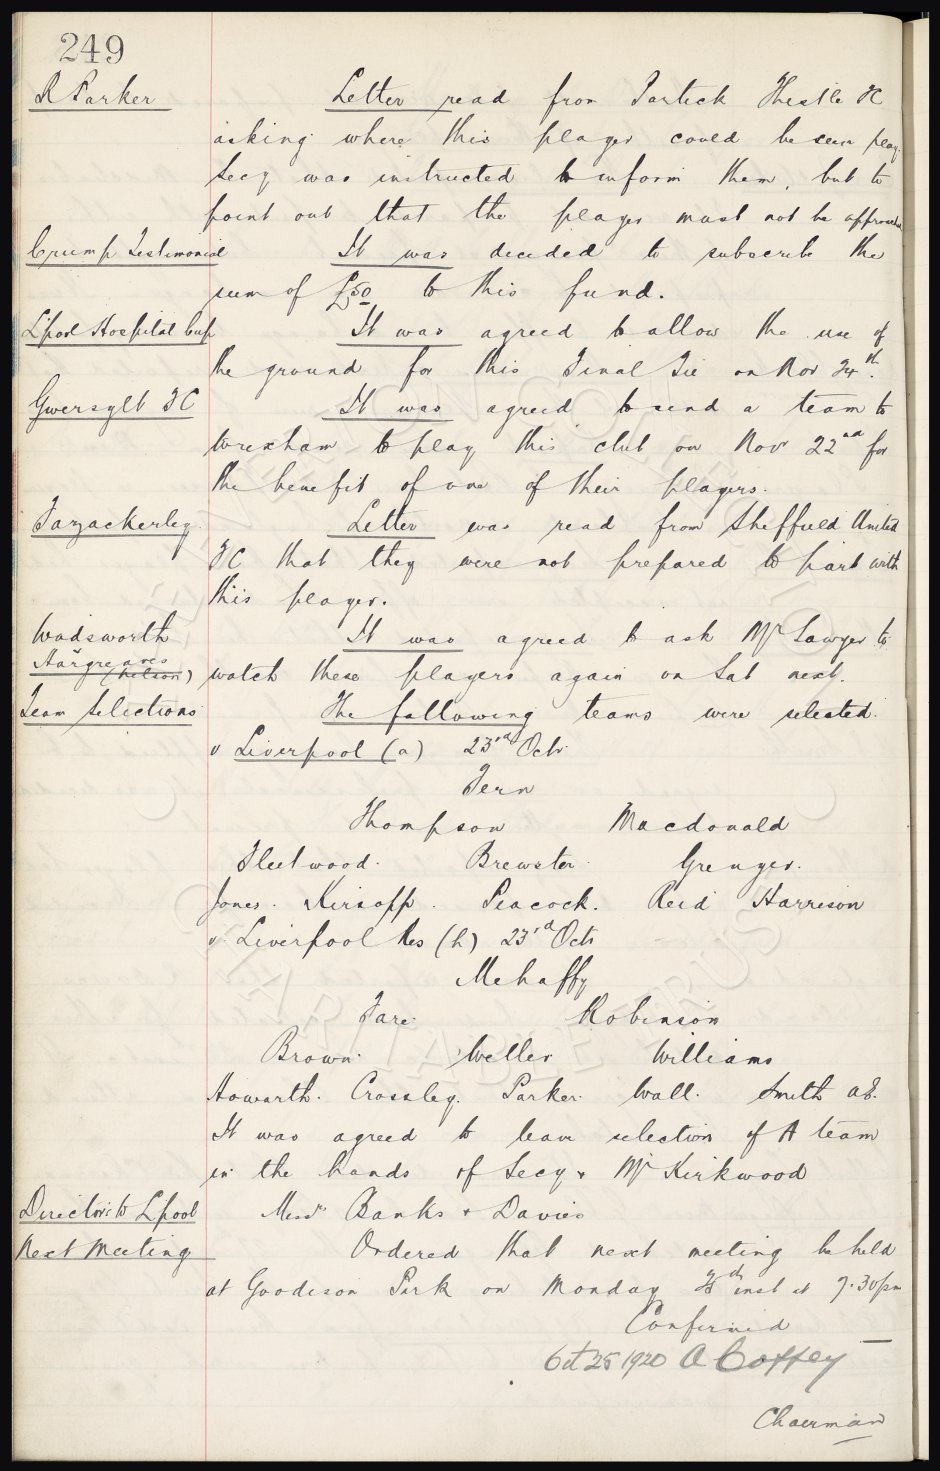 249
R Parker
Letter read from Partick Thistle FC
asking where this player could be seen play.
Secy was instructed to inform them, but to
point out that the player must not be approached
Crump Testimonial
It was decided to subscribe the
sum of £50 to this fund.
L'pool Hospital Cup
It was agreed to allow the use of
the ground for this Final Tie on Nov 24th.
Gwersyllt FC
It was agreed to send a team to
Wrexham to play this club on Nov 22nd for
the benefit of one of their players.
Fazackerley
Letter was read from Sheffield United
FC that they were not prepared to part with
this player.
Wadsworth
Hargreaves
(Nelson)
It was agreed to ask Mr Sawyer to
watch these players again on Sat next.
Team Selections
The following teams were selected.
v Liverpool (a) 23rd Oct.
Fern
Thompson Macdonald
Fleetwood. Brewster. Grenyer.
Jones. Kirsopp. Peacock. Reid Harrison
v. Liverpool Res (h) 23rd Oct
Mehaffy
Fare. Robinson
Brown. Weller Williams
Howarth. Crossley. Parker. Wall. Smith AE.
It was agreed to leave selection of A team
in the hands of Secy & Mr Kirkwood
Directors to L'pool
Messrs Banks & Davies
Next Meeting
Ordered that next meeting be held
at Goodison Park on Monday 25th inst at 7.30pm
Confirmed
Oct 25 1920 A Coffey
Chairman